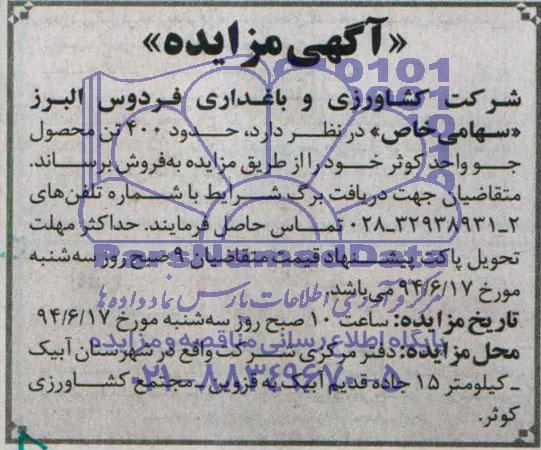 «آگهی مزایده»
شرکت کشاورزی و باغداری فردوس البرز
«سهامی خاص» در نظر دارد، حدود ۴۰۰ تن محصول
جو واحد کوثر خود را از طریق مزایده به‌فروش برساند.
متقاضیان جهت دریافت برگ شرایط با شماره تلفن‌های
۲_۳۲۹۳۸۹۳۱_۰۲۸ تماس حاصل فرمایند. حداکثر مهلت
تحویل پاکت پیشنهاد قیمت متقاضیان ۹ صبح روز سه‌شنبه
مورخ ۹۴/۶/۱۷ می‌باشد.
تاریخ مزایده: ساعت ۱۰ صبح روز سه‌شنبه مورخ ۹۴/۶/۱۷
محل مزایده: دفتر مرکزی شرکت واقع در شهرستان آبیک
_کیلومتر ۱۵ جاده قدیم آبیک به قزوین_مجتمع کشاورزی
کوثر.
ParsNamadData
مرکز فرآوری اطلاعات پارس نماد داده‌ها
پایگاه اطلاع رسانی مناقصه و مزایده
۰۲۱-۸۸۳۴۹۶۷۰-۵